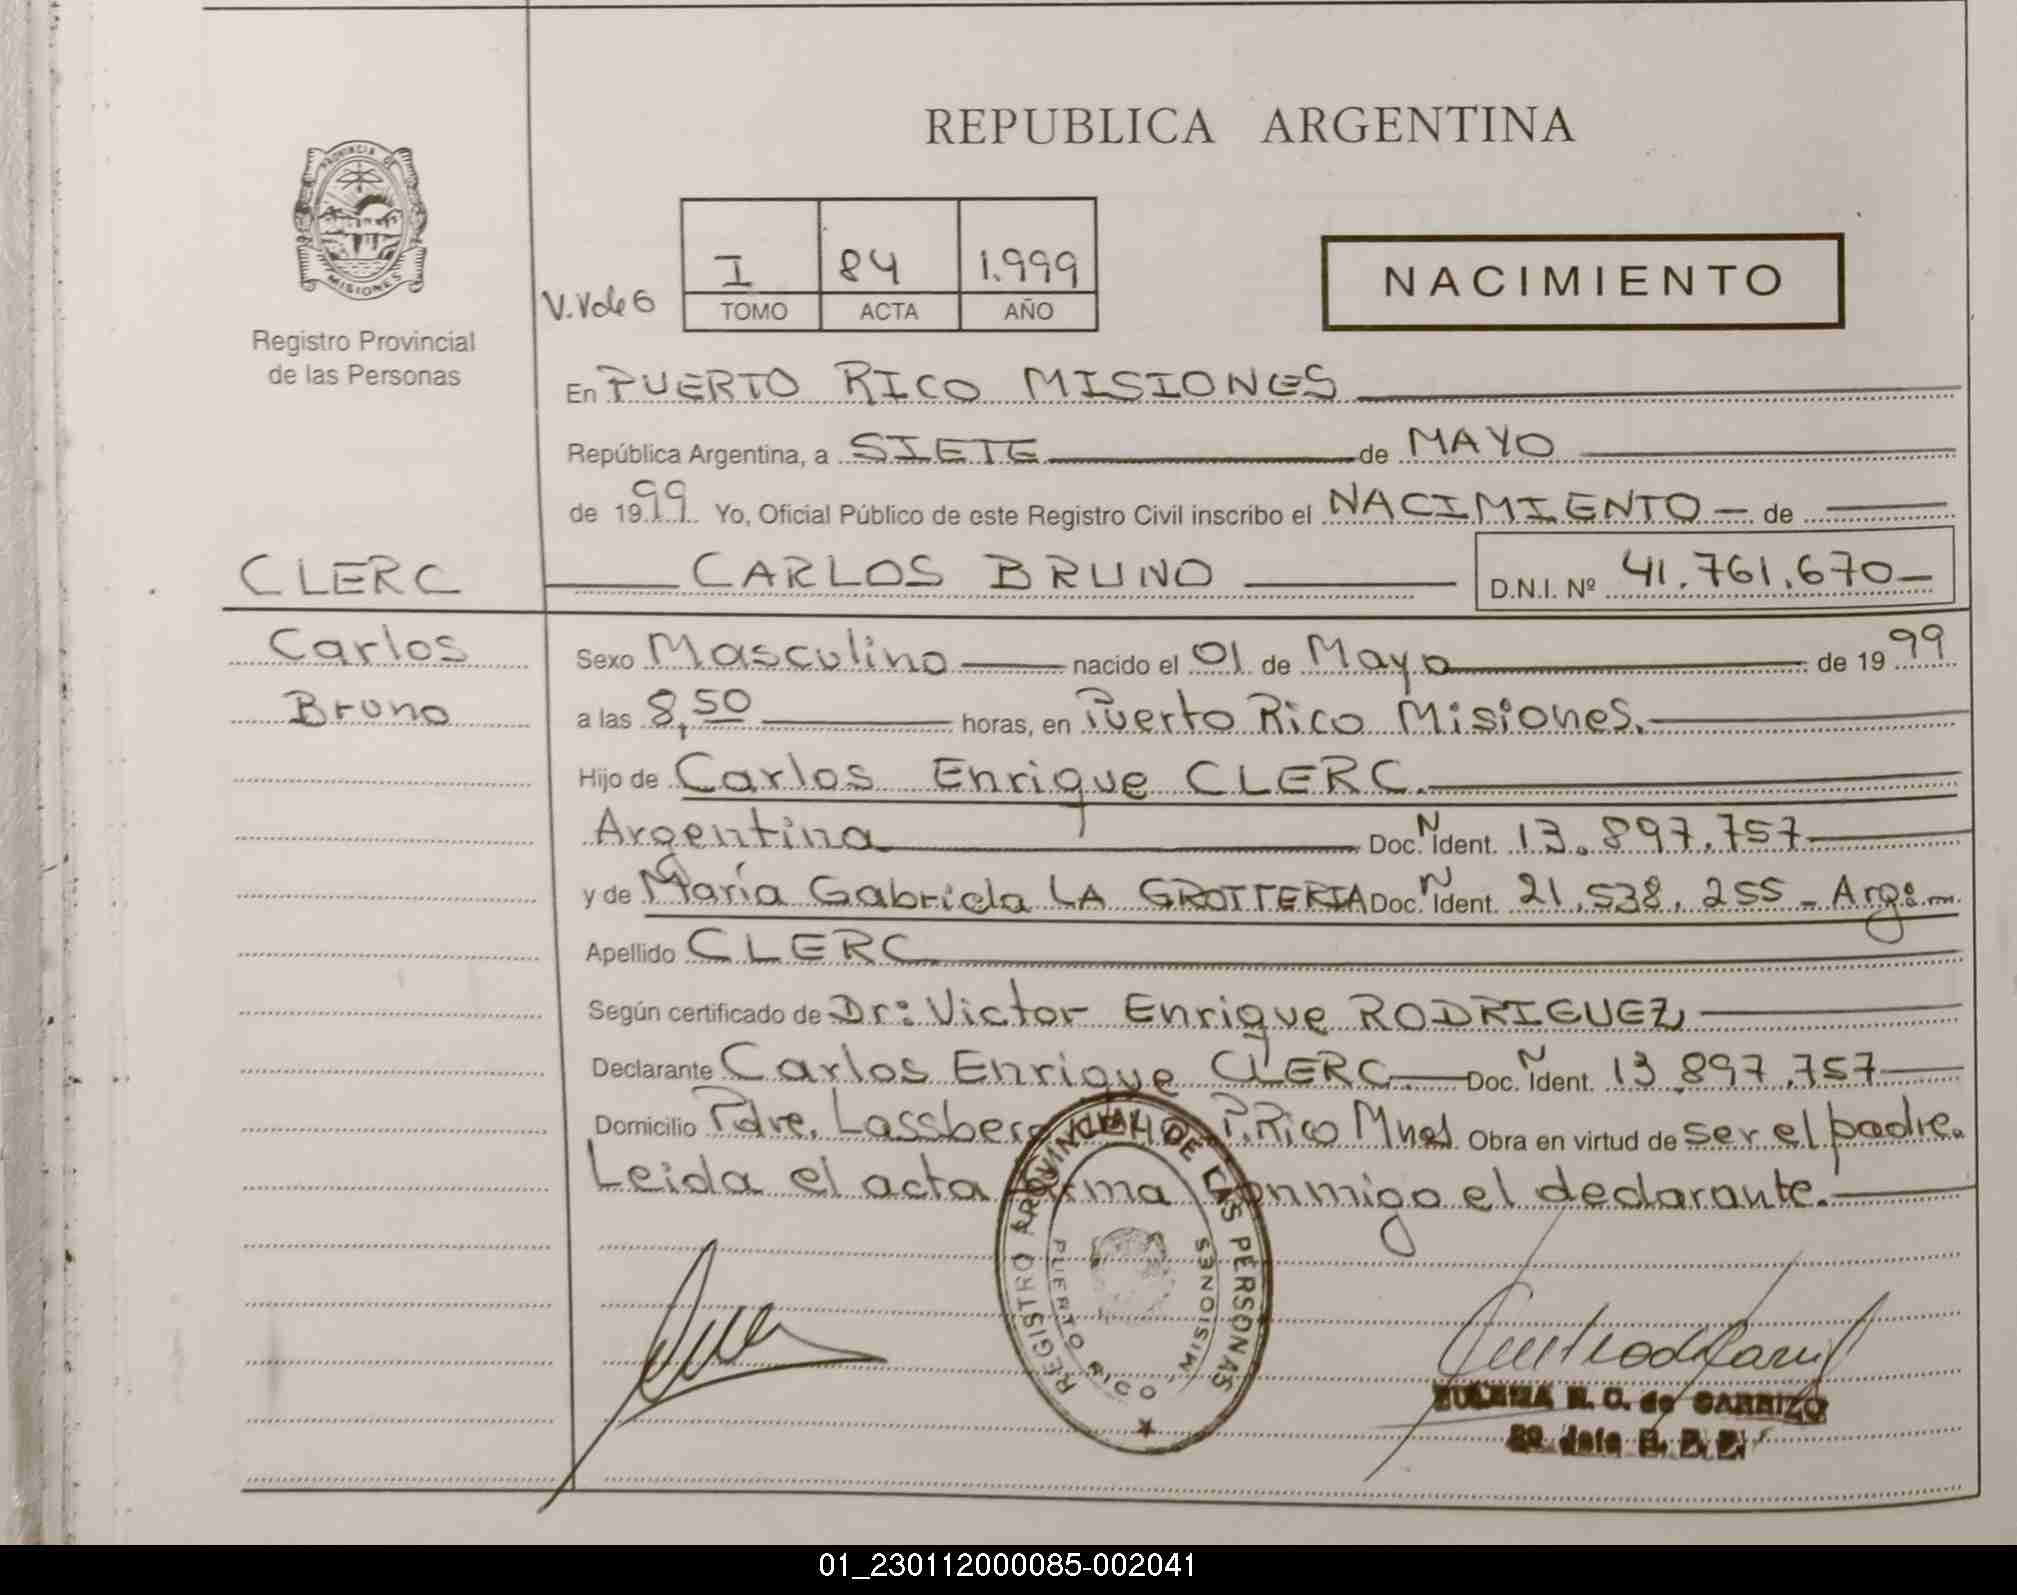 REPUBLICA ARGENTINA
PROVINCIA DE
MISIONES
Registro Provincial
de las Personas
I 84 1.999
TOMO ACTA AÑO
NACIMIENTO
En PUERTO RICO MISIONES
República Argentina, a SIETE de MAYO
de 1999 Yo, Oficial Público de este Registro Civil inscribo el NACIMIENTO de
CLERC
CARLOS BRUNO D.N.I. Nº 41.761.670
Carlos
Bruno
Sexo Masculino nacido el 01 de Mayo de 1999
a las 8,50 horas, en Puerto Rico Misiones.
Hijo de Carlos Enrique CLERC.
Argentina Doc. N Ident. 13.897.757
y de María Gabriela LA GROTTERIA Doc. N Ident. 21.538.255 - Arg:
Apellido CLERC
Según certificado de Dr: Victor Enrique RODRIGUEZ
Declarante Carlos Enrique CLERC. Doc. N Ident. 13.897.757
Domicilio Pdre. Lassberg P. Rico Mnes Obra en virtud de ser el padre.
Leida el acta firma conmigo el declarante.
REGISTRO PROVINCIAL DE LAS PERSONAS
PUERTO RICO MISIONES
R. C. de CARRIZO
01_230112000085-002041